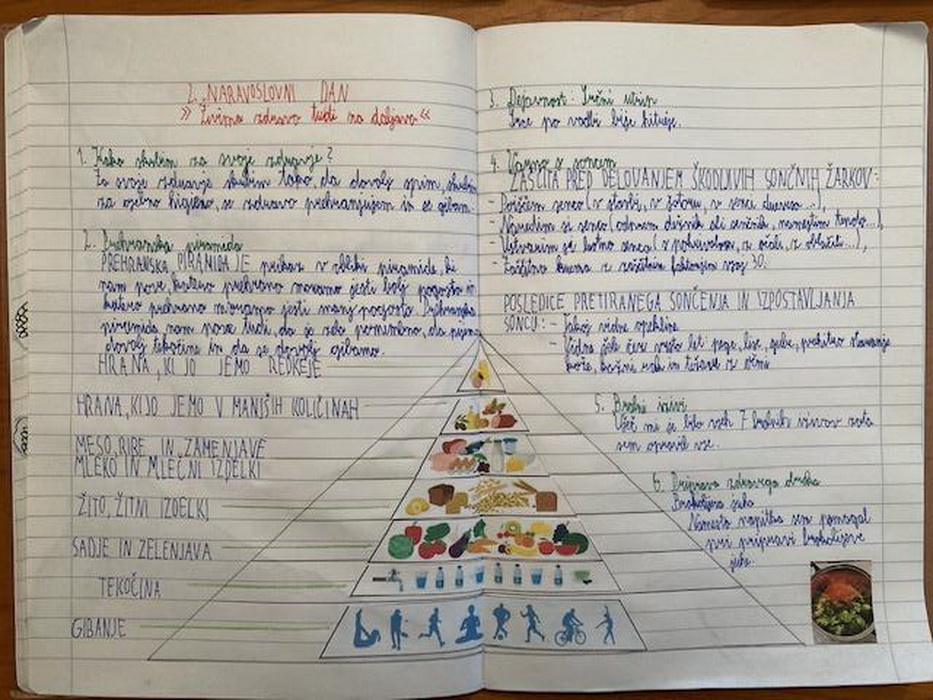 2. NARAVOSLOVNI DAN
»Živimo zdravo tudi na daljavo«
1. Kako skrbim za svoje zdravje?
Za svoje zdravje skrbim tako, da dovolj spim, skrbim
za osebno higieno, se zdravo prehranjujem in se gibam.
2. Prehranska piramida
PREHRANSKA PIRAMIDA JE prikaz v obliki piramide, ki
nam pove, katero prehrano moramo jesti bolj pogosto in
katero prehrano moramo jesti manj pogosto. Prehranska
piramida nam pove tudi, da je zelo pomembno, da pijemo
dovolj tekočine in da se dovolj gibamo.
HRANA, KI JO JEMO REDKEJE
HRANA, KI JO JEMO V MANJŠIH KOLIČINAH
MESO, RIBE IN ZAMENJAVE
MLEKO IN MLEČNI IZDELKI
ŽITO, ŽITNI IZDELKI
SADJE IN ZELENJAVA
TEKOČINA
GIBANJE
3. Dejavnost: Srčni utrip
Srce po vadbi bije hitreje.
4. Varno s soncem
ZAŠČITA PRED DELOVANJEM ŠKODLJIVIH SONČNIH ŽARKOV:
- Poiščem senco (v stavbi, v šotoru, v senci drevesa...),
- Naredim si senco (odprem dežnik ali senčnik, namestim tendo...),
- Ustvarim si lastno senco (s pokrivalom, z očali, z oblačili...),
- Zaščitna krema z zaščitnim faktorjem vsaj 30.
POSLEDICE PRETIRANEGA SONČENJA IN IZPOSTAVLJANJA
SONCU: - Takoj vidne opekline
- Vidne šele čez vrsto let: pege, lise, gube, prehitro staranje
kože, kožni rak in težave z očmi
5. Bralni izzivi
Všeč mi je bilo vseh 7 bralnih izzivov zato
sem opravil vse.
6. Priprava zdravega
Brokolijeva juha
Namesto napitka sem pomagal
pri pripravi brokolijeve
juhe.